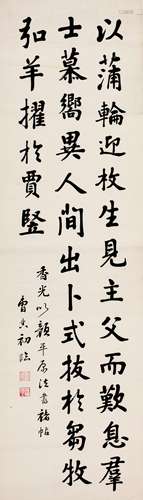 以蒲輪迎枚生見主父而歎息羣
士慕嚮異人間出卜式拔於芻牧
弘羊擢於賈竪
香光以顏平原法書褚帖
曾 初臨